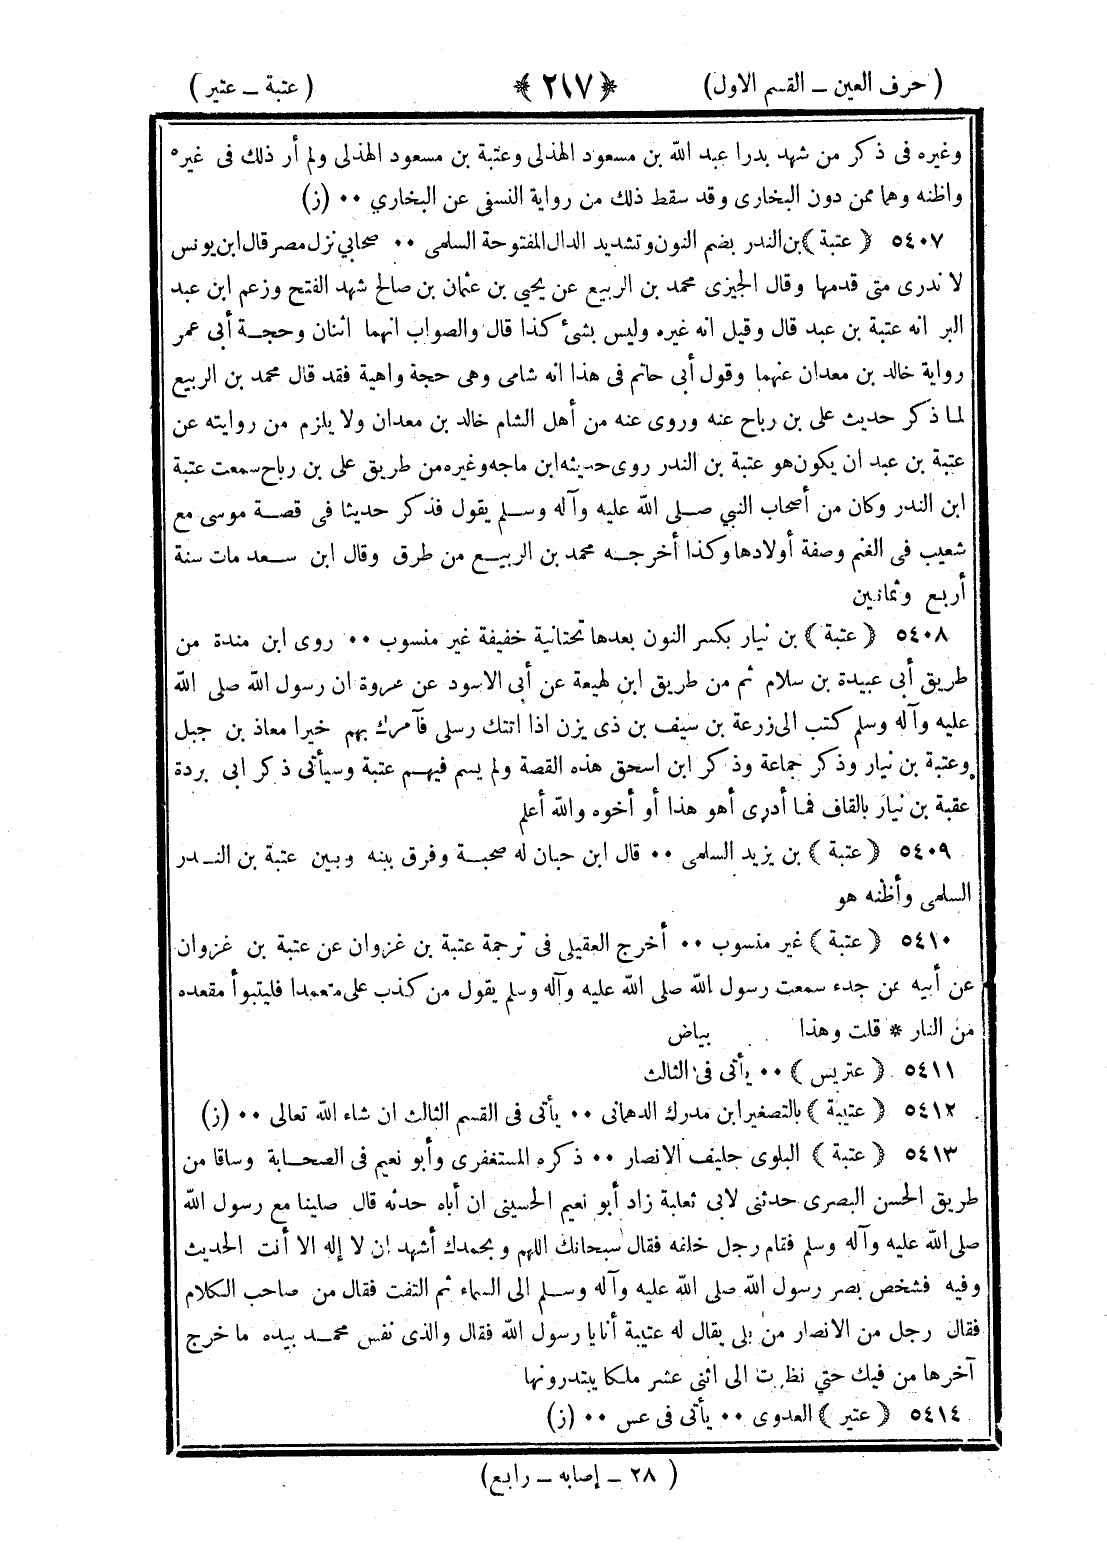 ( حرف العين ــ القسم الاول) ﴿ ٢١٧ ﴾ ( عتبة ــ عتير )
وغيره فى ذكر من شهد بدرا عبد الله بن مسعود الهذلى وعتبة بن مسعود الهذلى ولم أر ذلك فى غيره
واظنه وهما ممن دون البخارى وقد سقط ذلك من رواية النسفى عن البخاري ٠٠ (ز)
٥٤٠٧ ﴿ عتبة ﴾ بن الندر بضم النون وتشديد الدال المفتوحة السلمى ٠٠ صحابي نزل مصر قال ابن يونس
لا ندرى متى قدمها وقال الجيزى محمد بن الربيع عن يحيى بن عثمان بن صالح شهد الفتح وزعم ابن عبد
البر انه عتبة بن عبد قال وقيل انه غيره وليس بشئ كذا قال والصواب انهما اثنان وحجة أبى عمر
رواية خالد بن معدان عنهما وقول أبى حاتم فى هذا انه شامى وهى حجة واهية فقد قال محمد بن الربيع
لما ذكر حديث على بن رباح عنه وروى عنه من أهل الشام خالد بن معدان ولا يلزم من روايته عن
عتبة بن عبد ان يكون هو عتبة بن الندر روى حديثه ابن ماجه وغيره من طريق على بن رباح سمعت عتبة
ابن الندر وكان من أصحاب النبي صلى الله عليه وآله وسلم يقول فذكر حديثا فى قصة موسى مع
شعيب فى الغنم وصفة أولادها وكذا أخرجه محمد بن الربيع من طرق وقال ابن سعد مات سنة
أربع وثمانين
٥٤٠٨ ﴿ عتبة ﴾ بن نيار بكسر النون بعدها تحتانية خفيفة غير منسوب ٠٠ روى ابن مندة من
طريق أبى عبيدة بن سلام ثم من طريق ابن لهيعة عن أبى الاسود عن عروة ان رسول الله صلى الله
عليه وآله وسلم كتب الى زرعة بن سيف بن ذى يزن اذا اتتك رسلى فآمرك بهم خيرا معاذ بن جبل
وعتبة بن نيار وذكر جماعة وذكر ابن اسحق هذه القصة ولم يسم فيهم عتبة وسيأتى ذكر ابى بردة
عقبة بن نيار بالقاف فما أدرى أهو هذا أو أخوه والله أعلم
٥٤٠٩ ﴿ عتبة ﴾ بن يزيد السلمى ٠٠ قال ابن حبان له صحبة وفرق بينه وبين عتبة بن الندر
السلمى وأظنه هو
٥٤١٠ ﴿ عتبة ﴾ غير منسوب ٠٠ أخرج العقيلى فى ترجمة عتبة بن غزوان عن عتبة بن غزوان
عن أبيه عن جده سمعت رسول الله صلى الله عليه وآله وسلم يقول من كذب على متعمدا فليتبوأ مقعده
من النار * قلت وهذا بياض
٥٤١١ ﴿ عتريس ﴾ ٠٠ يأتى فى الثالث
٥٤١٢ ﴿ عتيبة ﴾ بالتصغير ابن مدرك الدهمانى ٠٠ يأتى فى القسم الثالث ان شاء الله تعالى ٠٠ (ز)
٥٤١٣ ﴿ عتبة ﴾ البلوى حليف الانصار ٠٠ ذكره المستغفرى وأبو نعيم فى الصحابة وساقا من
طريق الحسن البصرى حدثنى لابى ثعلبة زاد أبو نعيم الحسينى ان أباه حدثه قال صلينا مع رسول الله
صلى الله عليه وآله وسلم فقام رجل خلفه فقال سبحانك اللهم وبحمدك أشهد ان لا إله الا أنت الحديث
وفيه فشخص بصر رسول الله صلى الله عليه وآله وسلم الى السماء ثم التفت فقال من صاحب الكلام
فقال رجل من الانصار من بلى يقال له عتيبة أنا يا رسول الله فقال والذى نفس محمد بيده ما خرج
آخرها من فيك حتي نظرت الى اثنى عشر ملكا يبتدرونها
٥٤١٤ ﴿ عتير ﴾ العدوى ٠٠ يأتى فى عس ٠٠ (ز)
( ٢٨ ــ إصابه ــ رابع)